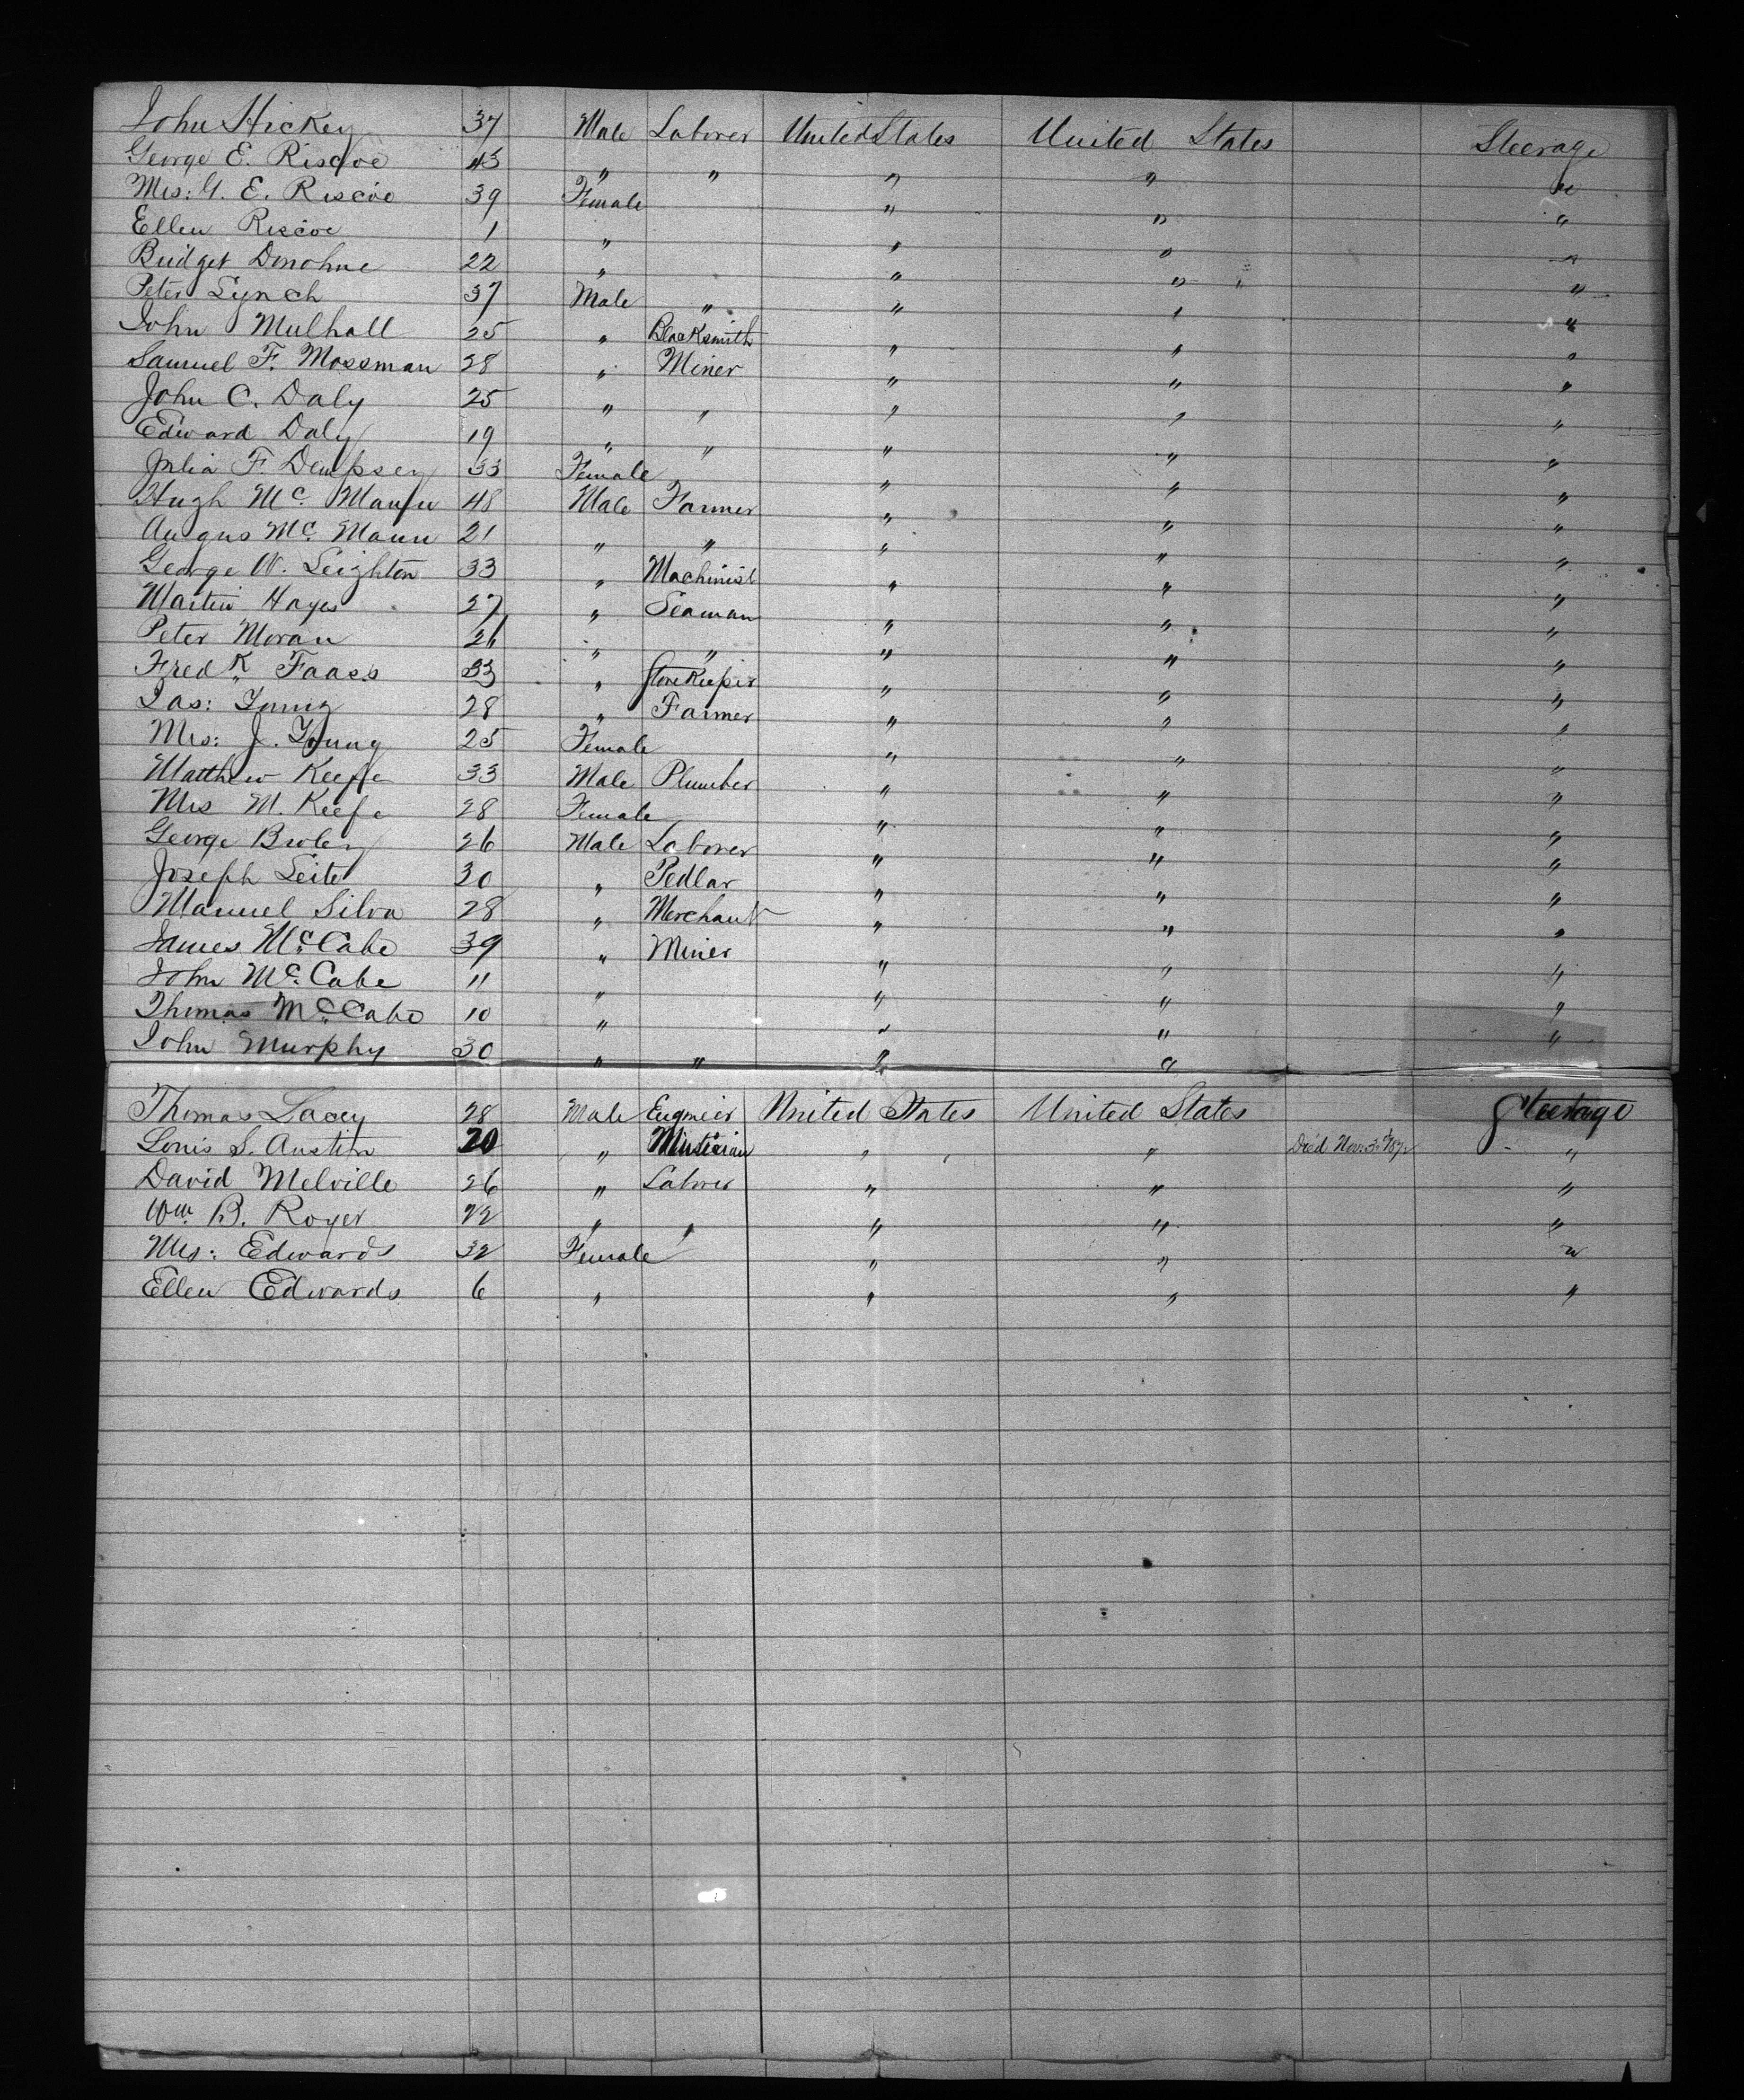 John Hickey 37 Male Laborer United States United States Steerage
George E. Riscoe 43 " " " " "
Mrs: G. E. Riscoe 39 Female " " "
Ellen Riscoe 1 " " " "
Bridget Donohue 22 " " " "
Peter Lynch 37 Male " " " "
John Mulhall 25 " Blacksmith " " "
Samuel F. Mossman 28 " Miner " " "
John C. Daly 25 " " " " "
Edward Daly 19 " " " " "
Julia F. Dempsey 33 Female " " "
Hugh Mc. Mann 48 Male Farmer " " "
Angus Mc. Mann 21 " " " " "
George W. Leighton 33 " Machinist " " "
Martin Hayes 27 " Seaman " " "
Peter Moran 26 " " " " "
Fredk Faass 33 " Storekeeper " " "
Jas: Young 28 " Farmer " " "
Mrs: J. Young 25 Female " " "
Matthew Keefe 33 Male Plumber " " "
Mrs M. Keefe 28 Female " " "
George 26 Male Laborer " " "
Joseph Leite 30 " Pedlar " " "
Manuel Silva 28 " Merchant " " "
James Mc. Cabe 39 " Miner " " "
John Mc. Cabe 11 " " " "
Thomas Mc. Cabe 10 " " " "
John Murphy 30 " " " "
Thomas Lacey 28 Male Engineer United States United States Steerage
Louis S. Austin 20 " Musician " " Died Nov. 3. 1872 "
David Melville 26 " Laborer " " "
Wm B. Royer 22 " " " " "
Mrs: Edwards 32 Female " " "
Ellen Edwards 6 " " " "